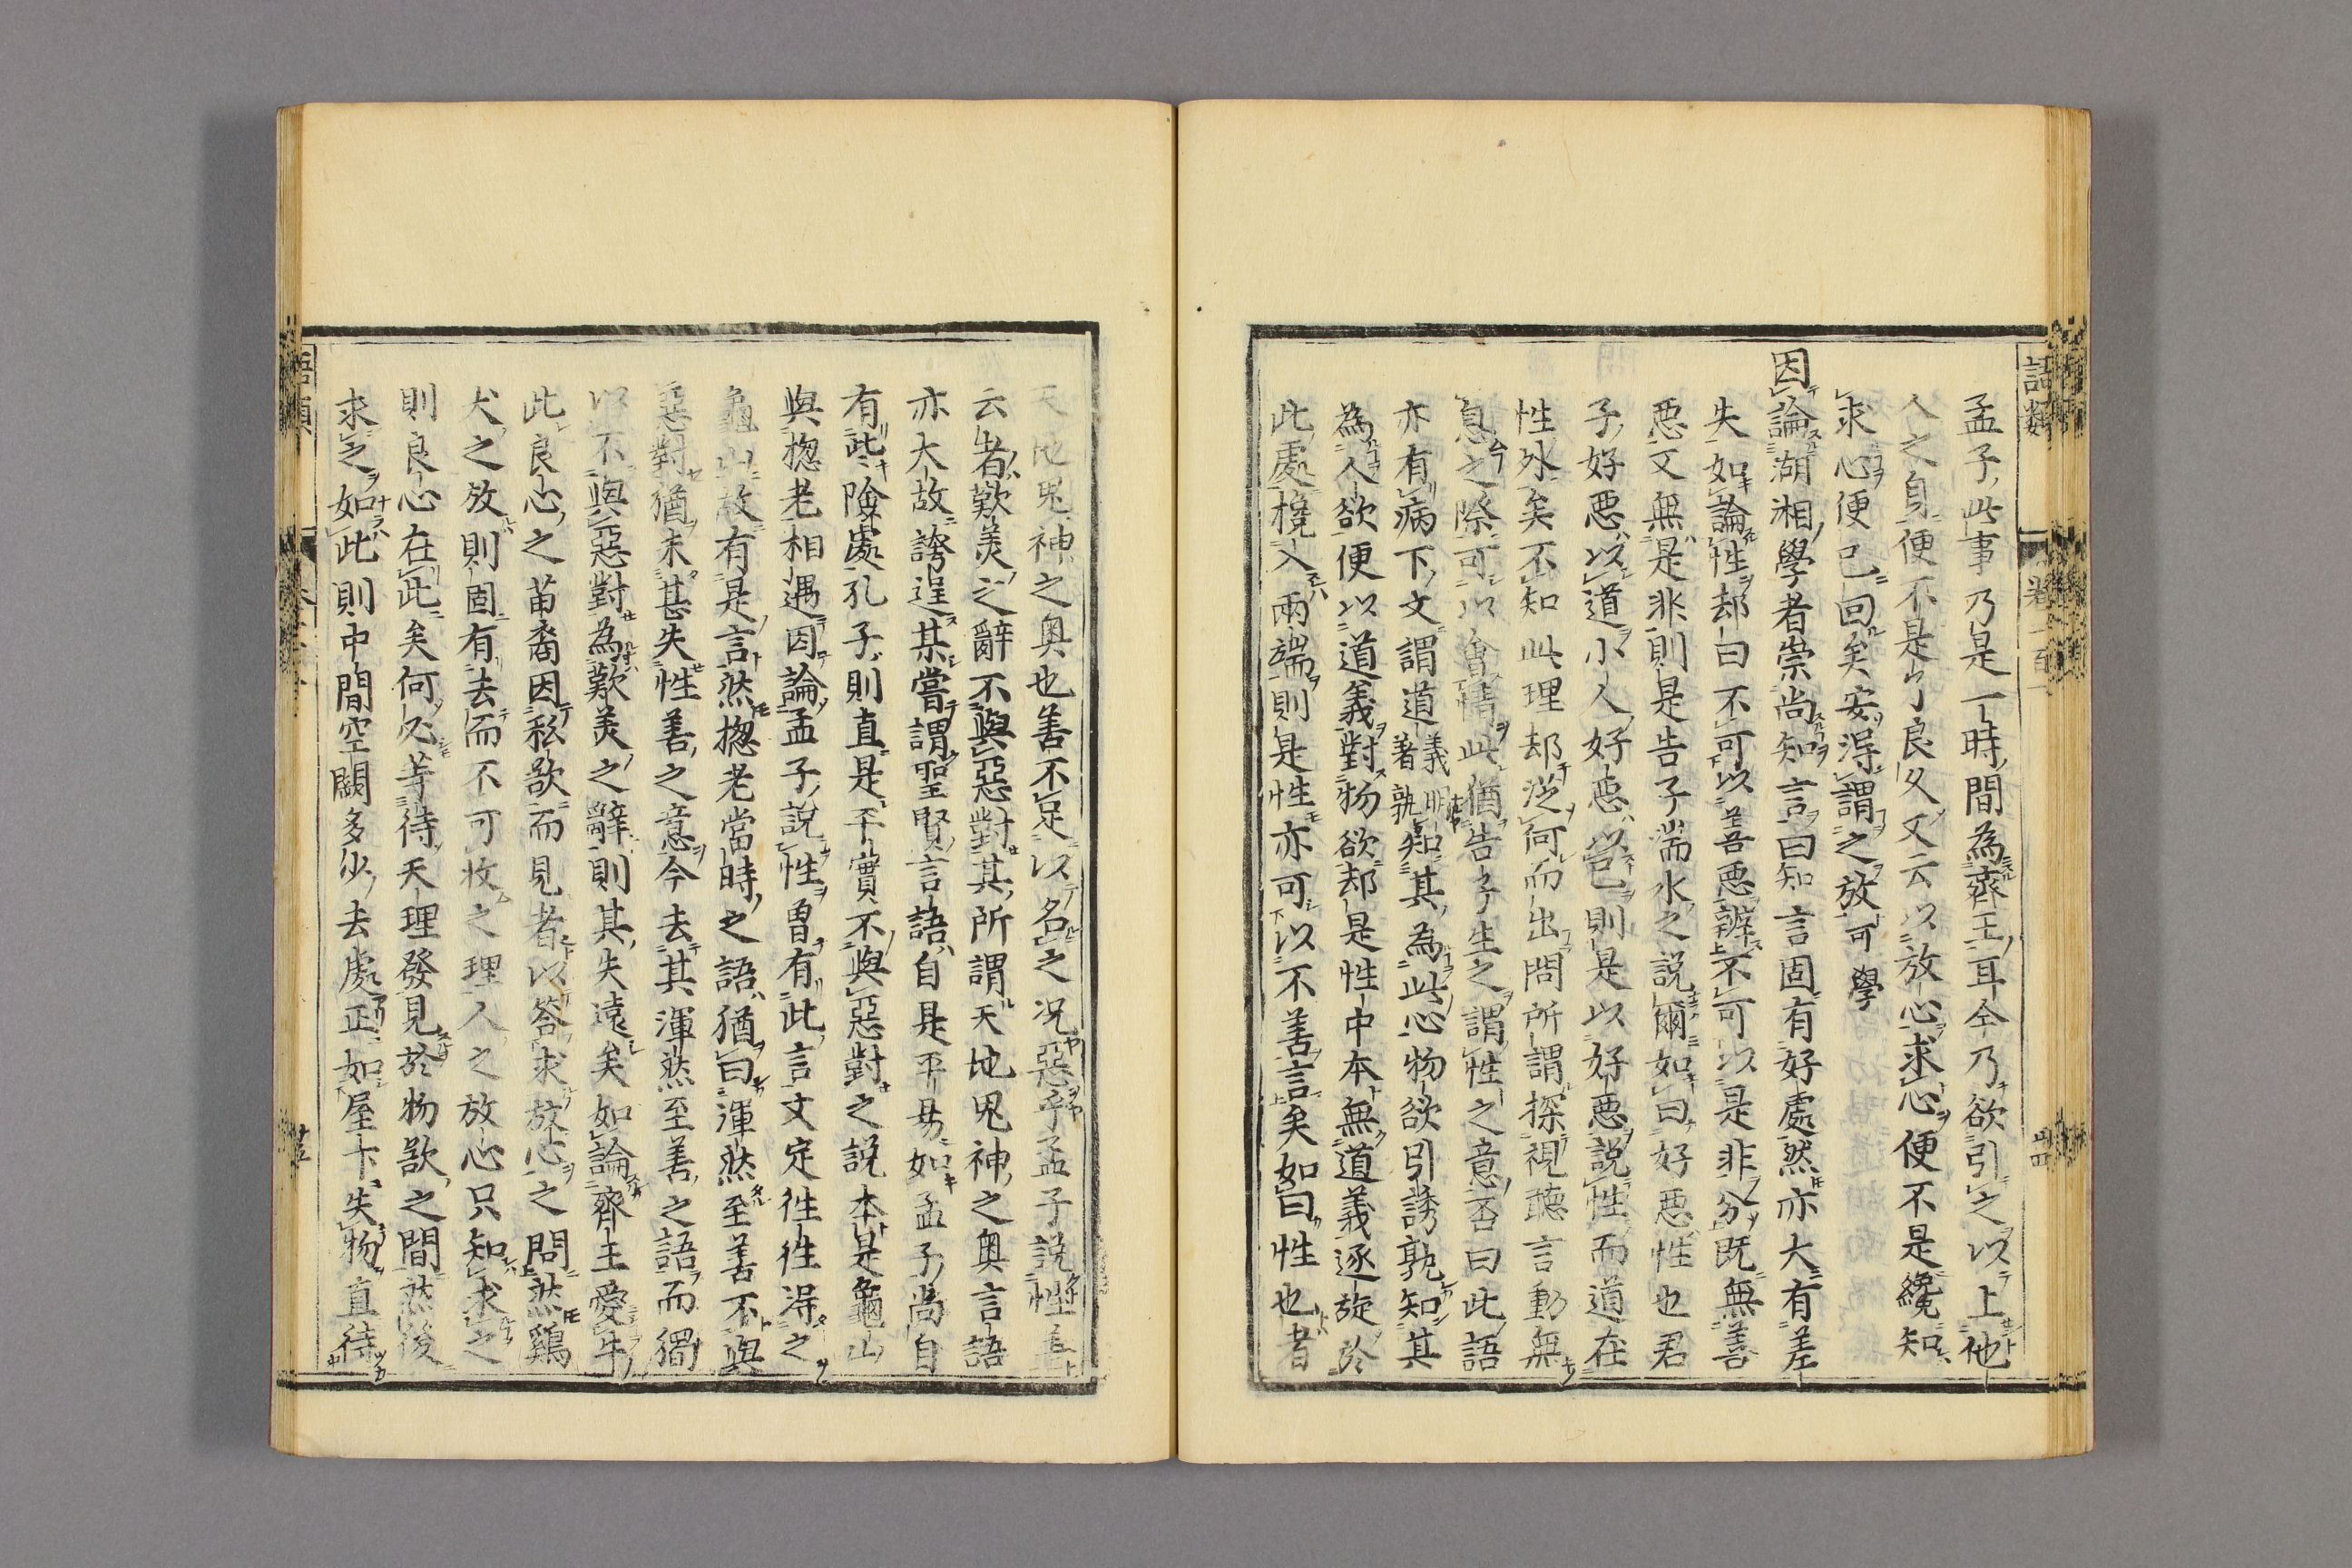 語類
卷一百一
四
孟子此事乃是一時間為齊王耳今乃欲引之以上他
人之身便不是了良久又云以放心求心便不是纔知
求心便已回矣安得謂之放可學
因論湖湘學者崇尚知言曰知言固有好處然亦大有差
失如論性却曰不可以善惡辨不可以是非分既無善
惡又無是非則是告子湍水之說爾如曰好惡性也君
子好惡以道小人好惡以己則是以好惡說性而道在
性外矣不知此理却從何而出問所謂探視聽言動無
息之際可以會情此猶告子生之謂性之意否曰此語
亦有病下文謂道義明著孰知其為此心物欲引誘孰知其
為人欲便以道義對物欲却是性中本無道義逐旋於
此處攙入兩端則是性亦可以不善言矣如曰性也者
天地鬼神之奧也善不足以名之況惡乎孟子說性善
云者歎羡之辭不與惡對其所謂天地鬼神之奧言語
亦大故誇逞某嘗謂聖賢言語自是平易如孟子尚自
有些險處孔子則直是平實不與惡對之說本是龜山
與揔老相遇因論孟子說性曾有此言文定往往得之
龜山故有是言然揔老當時之語猶曰渾然至善不與
惡對猶未甚失性善之意今去其渾然至善之語而獨
以不與惡對為歎羡之辭則其失遠矣如論齊王愛牛
此良心之苗裔因私欲而見者以答求放心之問然雞
犬之放則固有去而不可收之理人之放心只知求之
則良心在此矣何必等待天理發見於物欲之間然後
求之如此則中間空闕多少去處正如屋下失物直待
語類